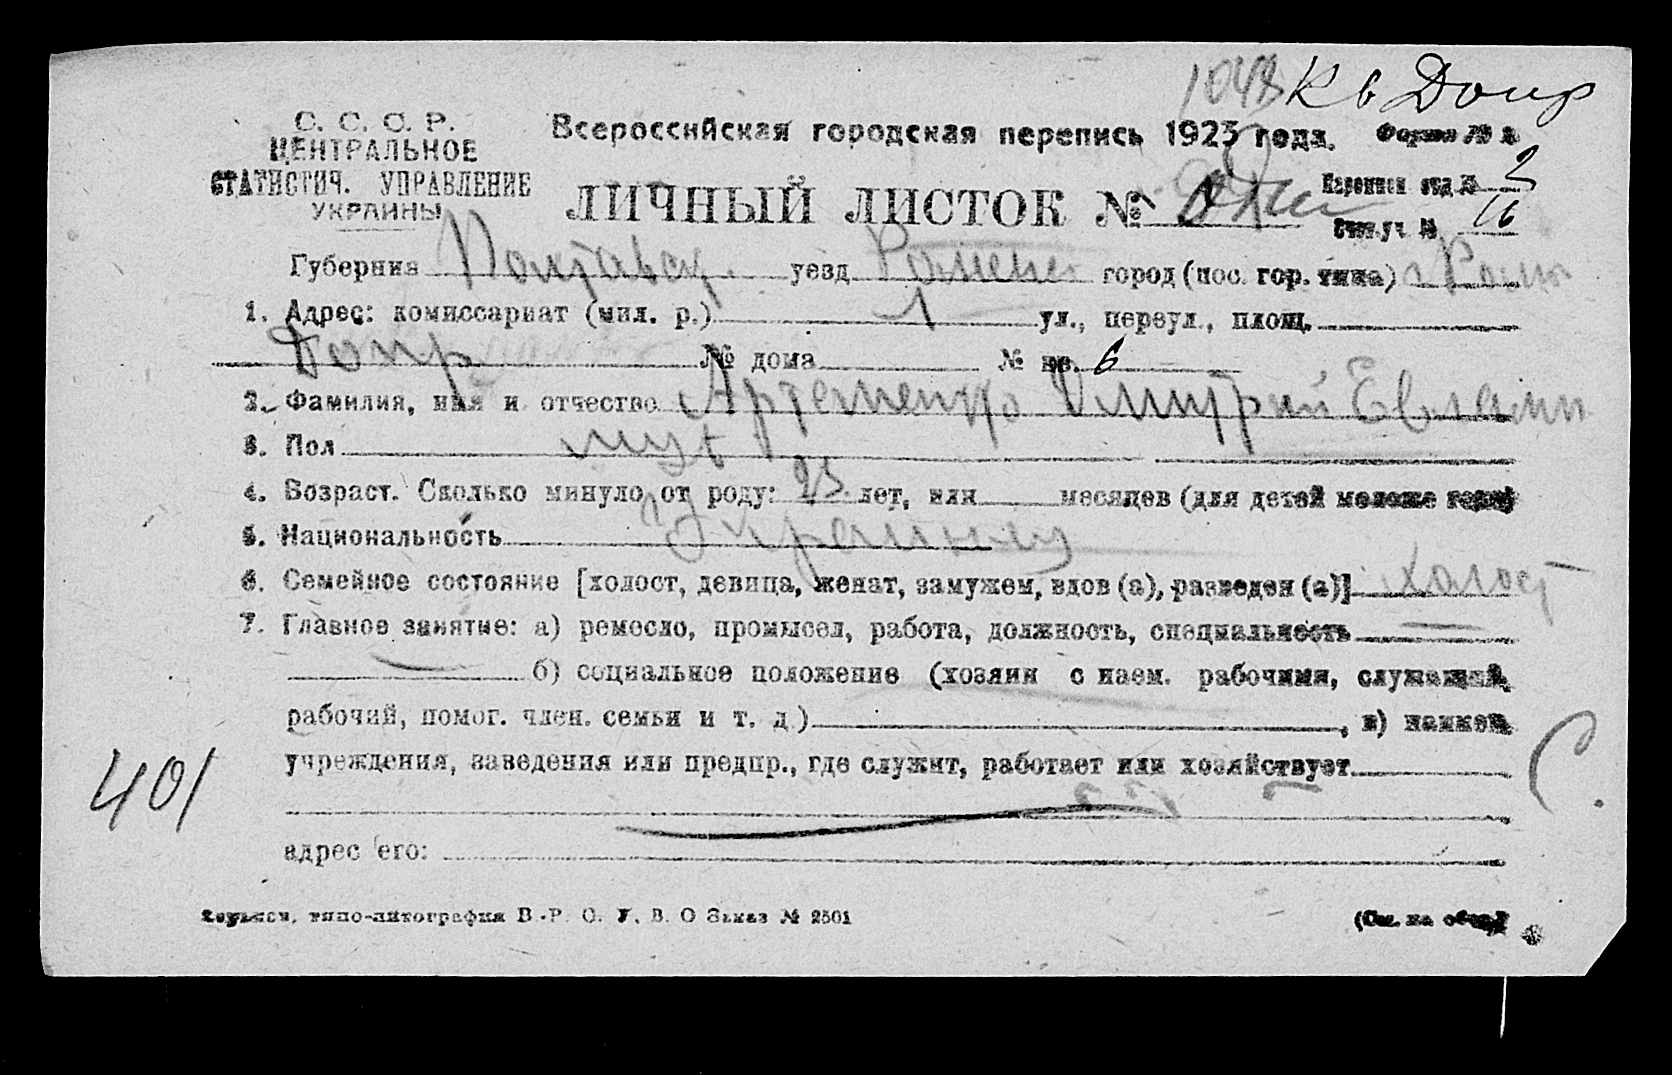 1048 Кв Допр
С. С. С. Р.
ЦЕНТРАЛЬНОЕ
СТАТИСТИЧ. УПРАВЛЕНИЕ
УКРАИНЫ
Всероссийская городская перепись 1923 года. Форма № 2
ЛИЧНЫЙ ЛИСТОК № 
отд № 2
Счетн. уч. № 16
Губерния Полтавск. уезд Роменск город (пос. гор. типа) г Ромн
1. Адрес: комиссариат (мил. р.) 1 ул., переул., площ.
Допр № дома № кв. 6
2. Фамилия, имя и отчество Артеменко Дмитрий Евламп
3. Пол муж
4. Возраст. Сколько минуло от роду: 23 лет, или месяцев (для детей моложе года)
5. Национальность Украинец
6. Семейное состояние [холост, девица, женат, замужем, вдов (а), разведен (а)] холост
7. Главное занятие: а) ремесло, промысел, работа, должность, специальность
б) социальное положение (хозяин с наем. рабочими, служащий,
рабочий, помог. член. семьи и т. д.) , в) наимен.
учреждения, заведения или предпр., где служит, работает или хозяйствует
401
С.
адрес его:
Харьков, типо-литография В.-Р. О. У. В. О Заказ № 2501
(См. на обор.)